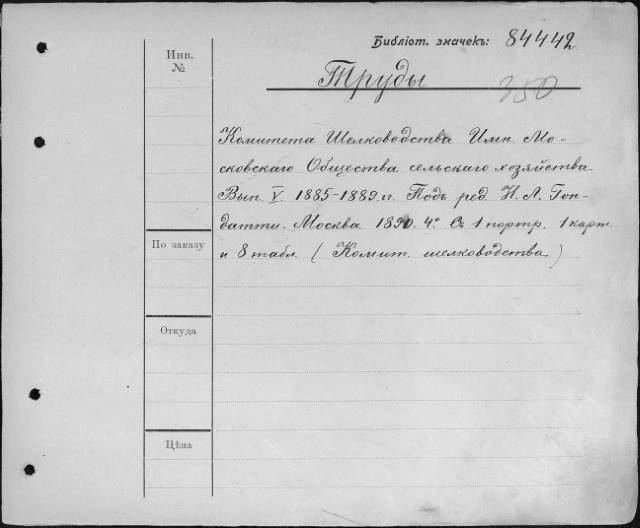 Библіот. значекъ: 84442
Инв.
№
Труды
350
Комитета Шелководства Имп. Мо-
сковскаго Общества сельскаго хозяйства
Вып. V. 1885-1889 гг. Подъ ред. Н. Л. Гон-
датти. Москва 1890. 4º. Съ 1 портр. 1 карт.
и 8 табл. (Комит. шелководства)
По заказу
Откуда
Цѣна